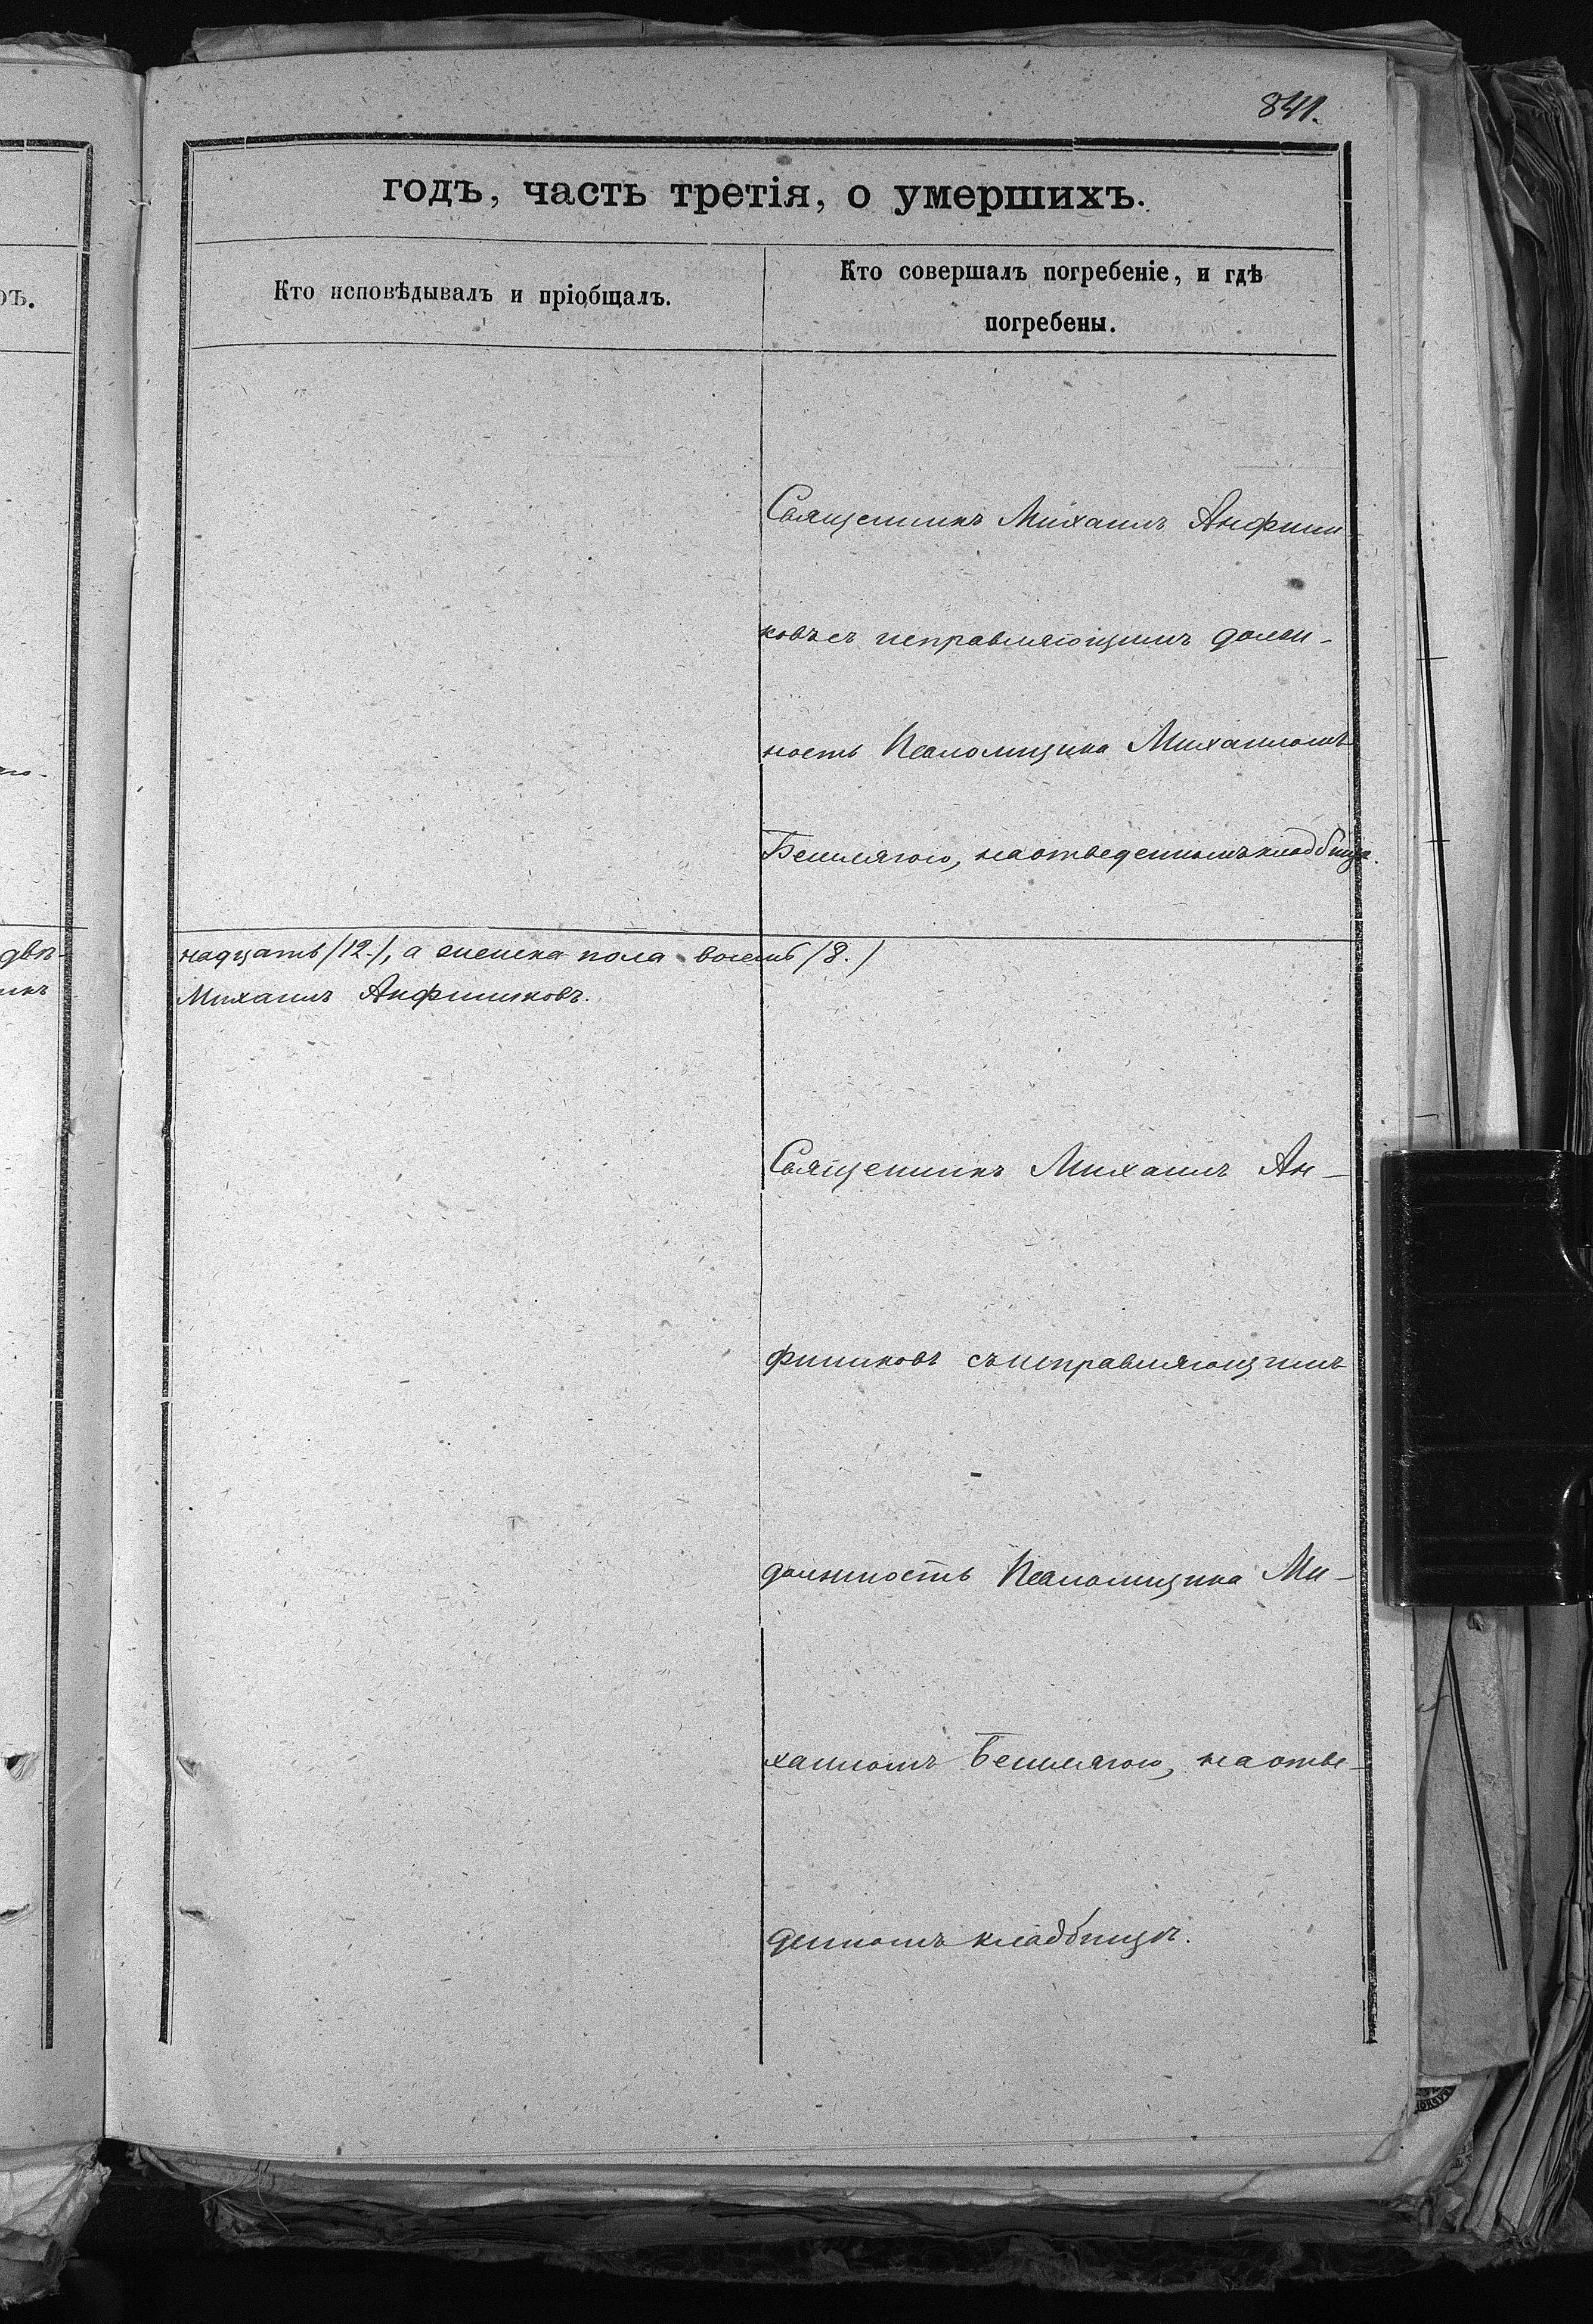 841.
годъ, часть третія, о умершихъ.
Кто исповѣдывалъ и пріобщалъ.
Кто совершалъ погребеніе, и гдѣ
погребены.
Священникъ Михаилъ Анфини-
ковъ съ исправляющимъ долж-
ность Псаломщика Михаиломъ
на отведенномъ кладбищѣ.
двѣ-
надцать /12./, а женска пола восемь /8./
Михаилъ Анфиниковъ.
Священникъ Михаилъ Ан-
финиковъ съ исправляющимъ
должность Псаломщика Ми-
хаиломъ на отве-
денномъ кладбищѣ.